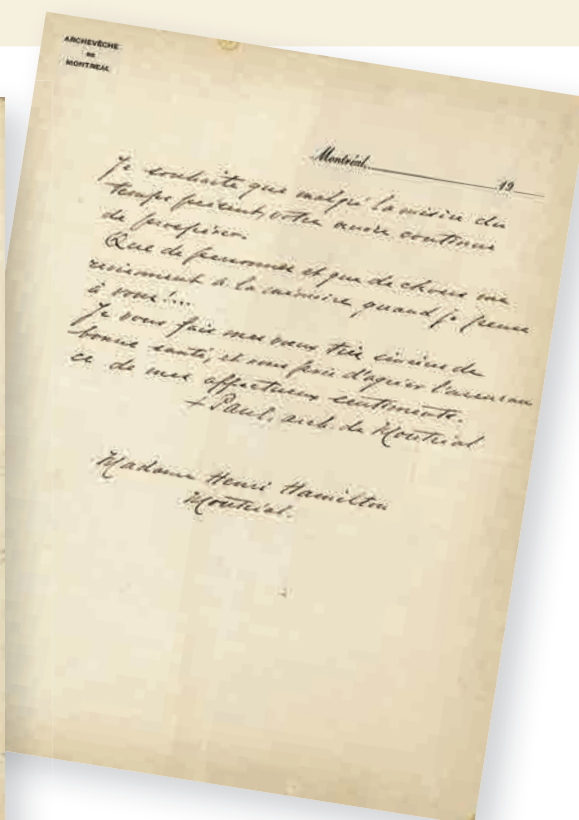 ARCHEVÊCHÉ
DE
MONTRÉAL
Montréal, 19
Je souhaite que malgré la misère du
temps présent, votre continue
de prospérer.
Que de personnes et que de choses me
reviennent à la mémoire, quand je pense
à vous!...
Je vous fais mes vœux très sincères de
bonne santé, et vous prie d'agréer l'assuran
ce de mes affectueux sentiments.
+ Paul, arch. de Montréal
Madame Henri Hamilton
Montréal.